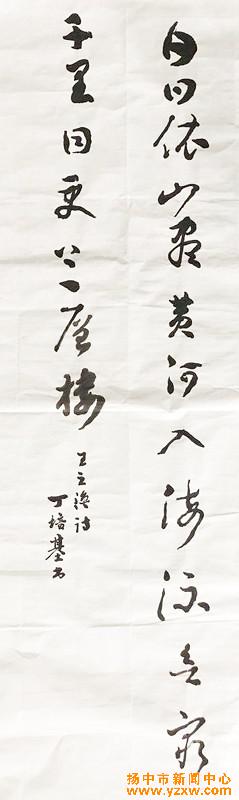 白日依山盡黄河入海流欲窮
千里目更上一層楼
王之涣诗
丁培基书
扬中市新闻中心
www.yzxw.com